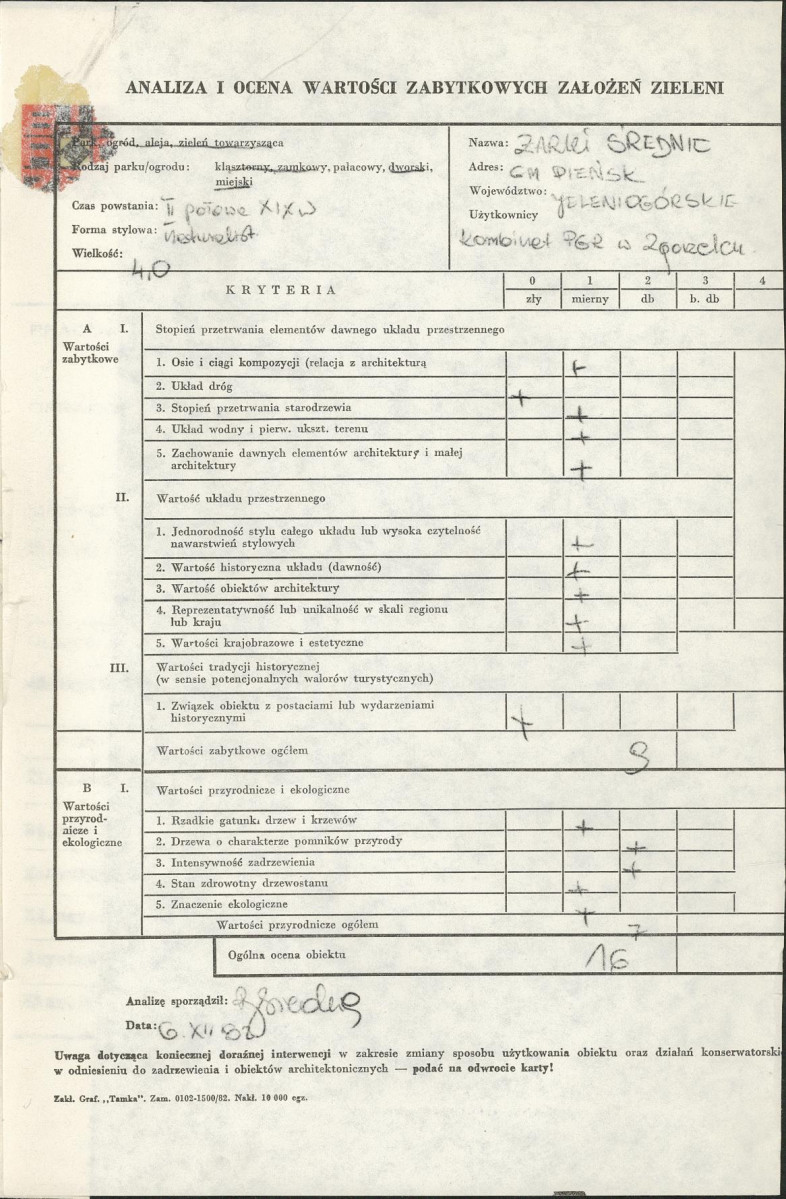 ANALIZA I OCENA WARTOŚCI ZABYTKOWYCH ZAŁOŻEŃ ZIELENI
Park, ogród, aleja, zieleń towarzysząca
Rodzaj parku/ogrodu: klasztorny, zamkowy, pałacowy, dworski,
miejski
Czas powstania: II połowa XIX w
Forma stylowa: naturalist
Wielkość: 4,0
Nazwa: ŻARKI ŚREDNIE
Adres: GM PIEŃSK
Województwo: JELENIOGÓRSKIE
Użytkownicy
Kombinat PGR w Zgorzelcu
KRYTERIA
0 1 2 3 4
zły mierny db b. db
A I. Stopień przetrwania elementów dawnego układu przestrzennego
Wartości
zabytkowe
1. Osie i ciągi kompozycji (relacja z architekturą +
2. Układ dróg +
3. Stopień przetrwania starodrzewia +
4. Układ wodny i pierw. ukszt. terenu +
5. Zachowanie dawnych elementów architektury i małej
architektury +
II. Wartość układu przestrzennego
1. Jednorodność stylu całego układu lub wysoka czytelność
nawarstwień stylowych +
2. Wartość historyczna układu (dawność) +
3. Wartość obiektów architektury +
4. Reprezentatywność lub unikalność w skali regionu
lub kraju +
5. Wartości krajobrazowe i estetyczne +
III. Wartości tradycji historycznej
(w sensie potencjonalnych walorów turystycznych)
1. Związek obiektu z postaciami lub wydarzeniami
historycznymi +
Wartości zabytkowe ogółem 9
B I. Wartości przyrodnicze i ekologiczne
Wartości
przyrod-
nicze i
ekologiczne
1. Rzadkie gatunki drzew i krzewów +
2. Drzewa o charakterze pomników przyrody +
3. Intensywność zadrzewienia +
4. Stan zdrowotny drzewostanu +
5. Znaczenie ekologiczne +
Wartości przyrodnicze ogółem 7
Ogólna ocena obiektu 16
Analizę sporządził:
Data: 6. XII 83
Uwaga dotycząca koniecznej doraźnej interwencji w zakresie zmiany sposobu użytkowania obiektu oraz działań konserwatorski
w odniesieniu do zadrzewienia i obiektów architektonicznych — podać na odwrocie karty!
Zakł. Graf. „Tamka". Zam. 0102-1500/82. Nakł. 10 000 egz.